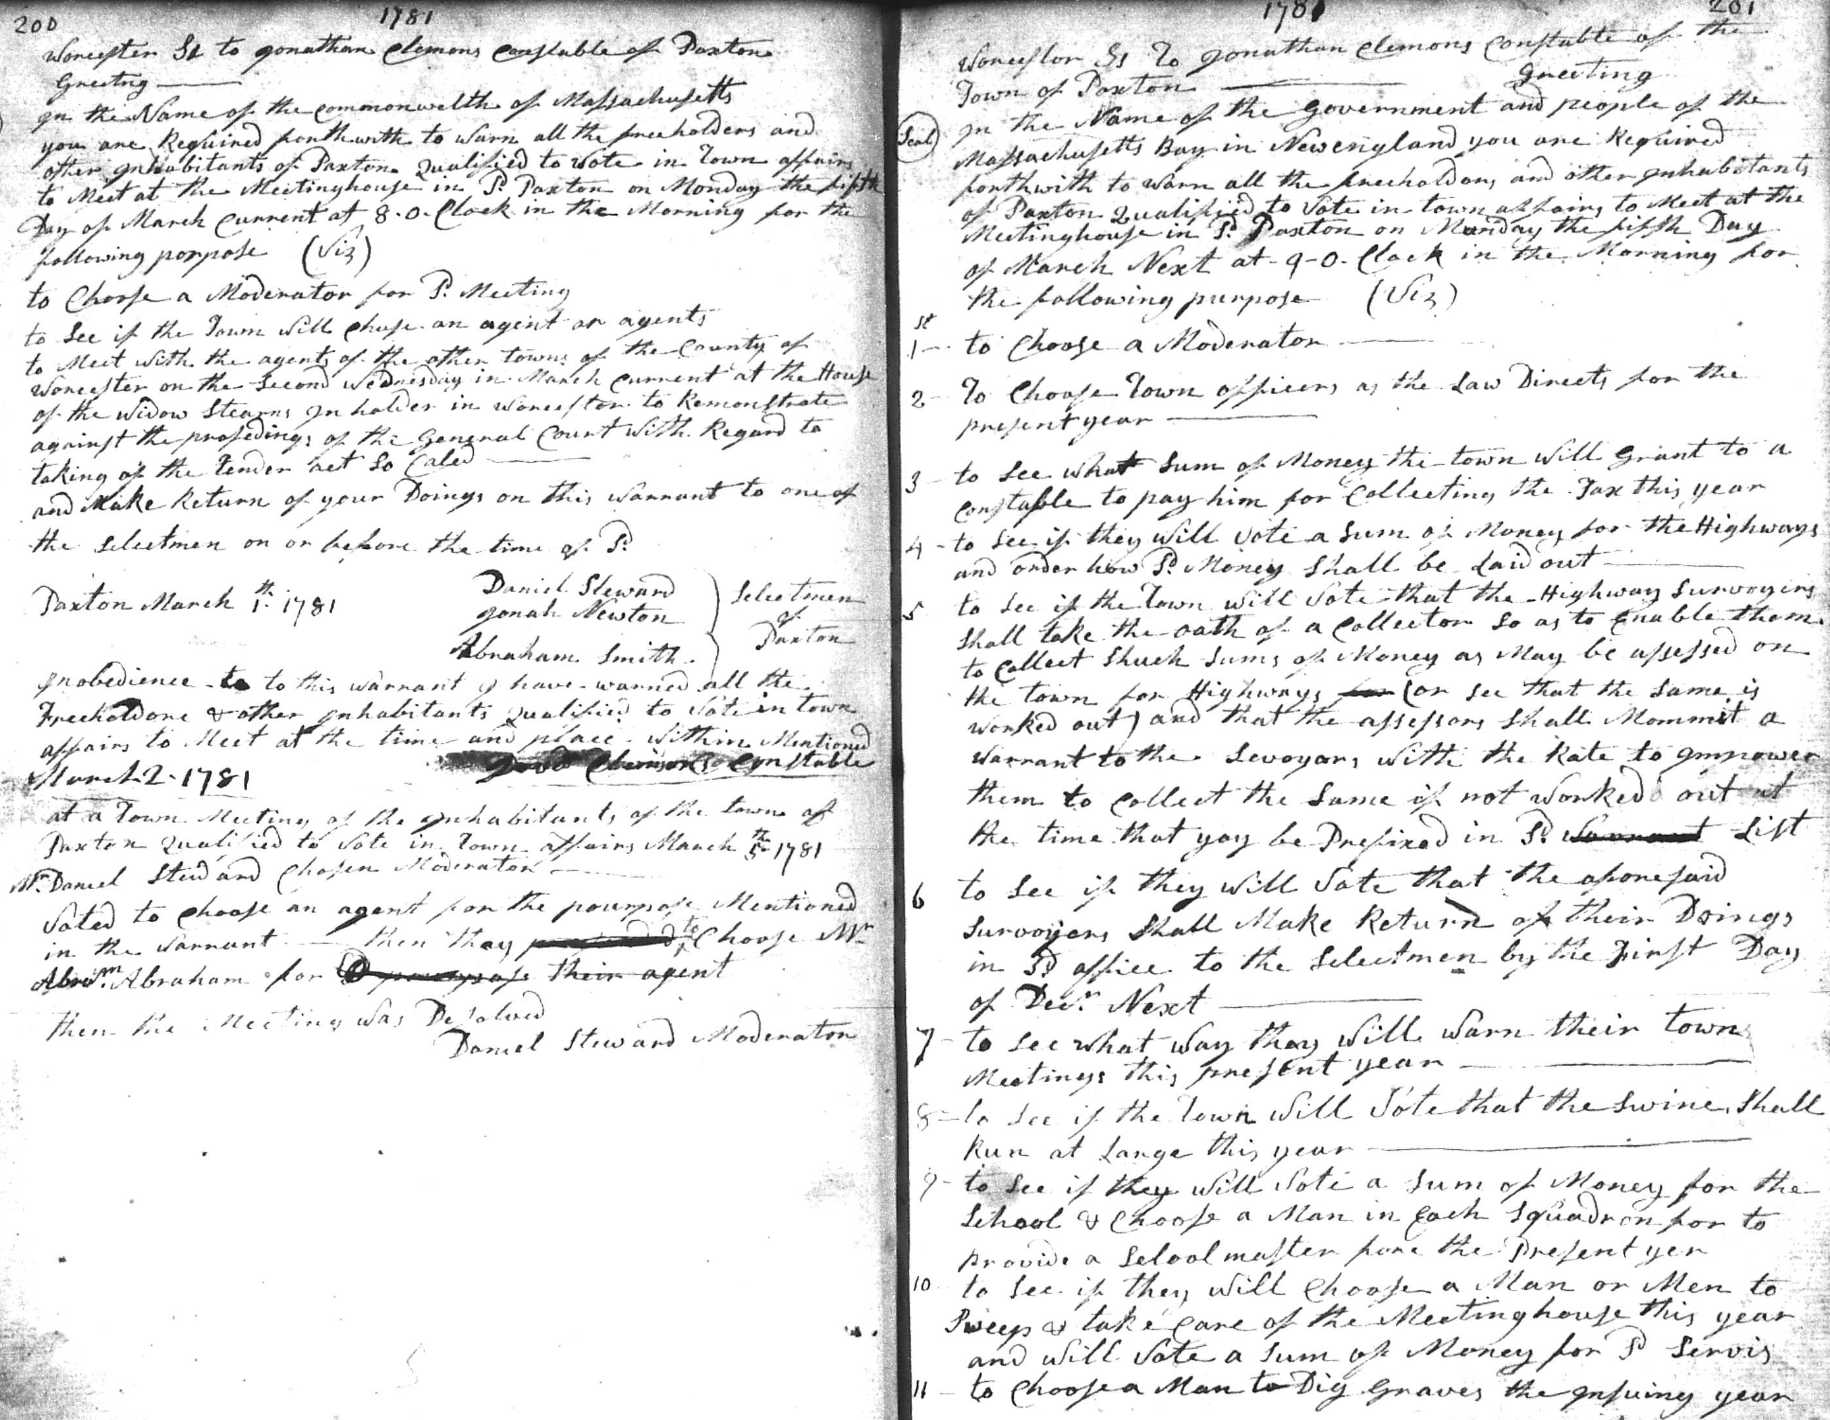 200
1781
Worcester Ss to Jonathan Clemons Constable of Paxton
Greeting
In the Name of the Commonwelth of Massachusetts
you are Required forthwith to warn all the freeholders and
other Inhabitants of Paxton Qualified to Vote in Town affairs
to Meet at the Meetinghouse in Sd Paxton on Monday the fifth
Day of March Current at 8-o-Clock in the Morning for the
following porpose (Viz)
to Choose a Moderator for Sd Meeting
to See if the Town Will Chuse an agent or agents
to Meet with the agents of the other towns of the County of
Worcester on the Second Wednesday in March Current at the House
of the Widow Stearns Inholder in Worcester to Remonstrate
against the prosedings of the General Court With Regard to
taking of the Tender act So Caled
and Make Return of your Doings on this Warrant to one of
the Selectmen on or before the time of Sd
Paxton March 1th 1781
Daniel Steward
Jonah Newton
Abraham Smith
Selectmen
of
Paxton
In obedience to to this warrant I have warned all the
Freeholdore & other Inhabitants Qualified to Vote in town
affairs to Meet at the time and place within Mentioned
March 2-1781
Clemons Constable
at a Town Meeting of the Inhabitants of the town of
Paxton Qualified to Vote in Town affairs March 5th 1781
Mr Daniel Steward Chosen Moderator
Voted to Choose an agent for the pourpose Mentioned
in the Warrant then they to Choose Mr
Abrm Abraham for their agent
then the Meeting was Desolved
Daniel Steward Moderator
1781
201
Worcester Ss To Jonathan Clemons Constable of the
Town of Paxton Greeting
Seal
In the Name of the Government and people of the
Massachusetts Bay in Newengland you are Required
forthwith to warn all the freeholders and other Inhabitants
of Paxton Qualified to Vote in town affairs to Meet at the
Meetinghouse in Sd Paxton on Monday the fifth Day
of March Next at 9-o-Clock in the Morning for
the following purpose (Viz)
1st to Choose a Moderator
2 To Choose Town officers as the Law Directs for the
present year
3 to See what Sum of Money the town Will Grant to a
Constable to pay him for Collecting the Tax this year
4 to See if they Will Vote a Sum of Money for the Highways
and order how Sd Money Shall be Laid out
5 to See if the Town will Vote that the Highway Survoyers
Shall take the oath of a Collector So as to Enable them
to Collect Shuch Sums of Money as May be assessed on
the town for Highways for (or See that the Same is
worked out) and that the assessors Shall Mommit a
Warrant to the Sevoyars with the Rate to Impower
them to Collect the Same if not Worked out at
the time that yay be Prefixed in Sd Warrant List
6 to See if they Will Vote that the aforesaid
Survoyers Shall Make Return of their Doings
in Sd office to the Selectmen by the First Day
of Decr Next
7 to See what Way they Will Warn their town
Meetings this present year
8 to See if the Town Will Vote that the Swine Shall
Run at Large this year
9 to See if they Will Vote a Sum of Money for the
School & Choose a Man in Each Squadron for to
provide a Scloolmaster fore the Present yer
10 to See if they Will Choose a Man or Men to
Sweep & take Care of the Meetinghouse this year
and will Vote a Sum of Money for Sd Servis
11 to Choose a Man to Dig Graves the Insuing year